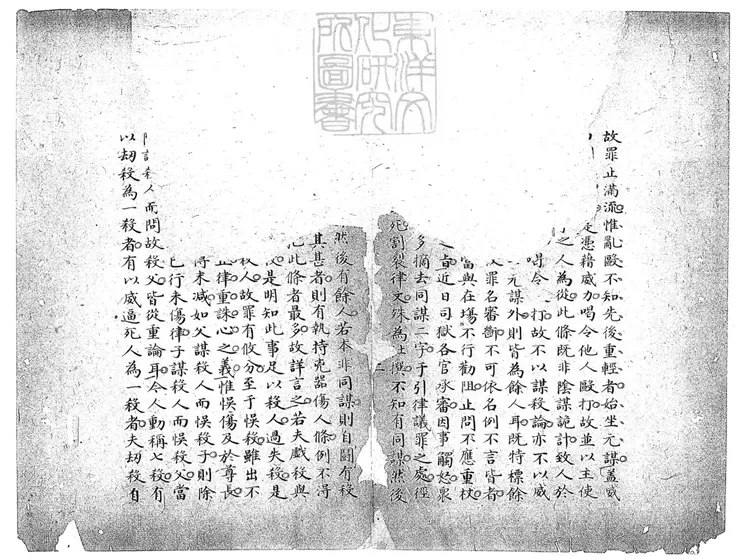 東洋文
化研究
所圖書
故罪止滿流惟亂毆不知先後重輕者始坐元謀蓋威
是憑藉威力唱令他人毆打故並以主使
之人為從此條既非陰謀詭計致人於
唱令 打故不以謀殺論亦不以威
元謀外則皆為餘人耳既特標餘
罪名審斷不可依名例不言皆者
當與在場不行勸阻止問不應重杖
近日司獄各官承審因事觸怒衆
多摘去同謀二字于引律議罪之處徑
死割裂律文殊為 不知有同謀然後
然後有餘人若本非同謀則自關有殺
其甚者則有執持兇器傷人條例不得
此條者最多故詳言之若夫戲殺與
是明知此事足以殺人過失殺是
殺人故罪有攸分至于悞殺雖出不
律重誅心之義惟悞傷及於尊長
得末減如父謀殺人而悞殺子則除
已行未傷律子謀殺人而悞殺父當
人而問故殺父皆從重論耳今人動稱七殺有
以刼殺為一殺者有以威逼死人為一殺者夫刼殺自